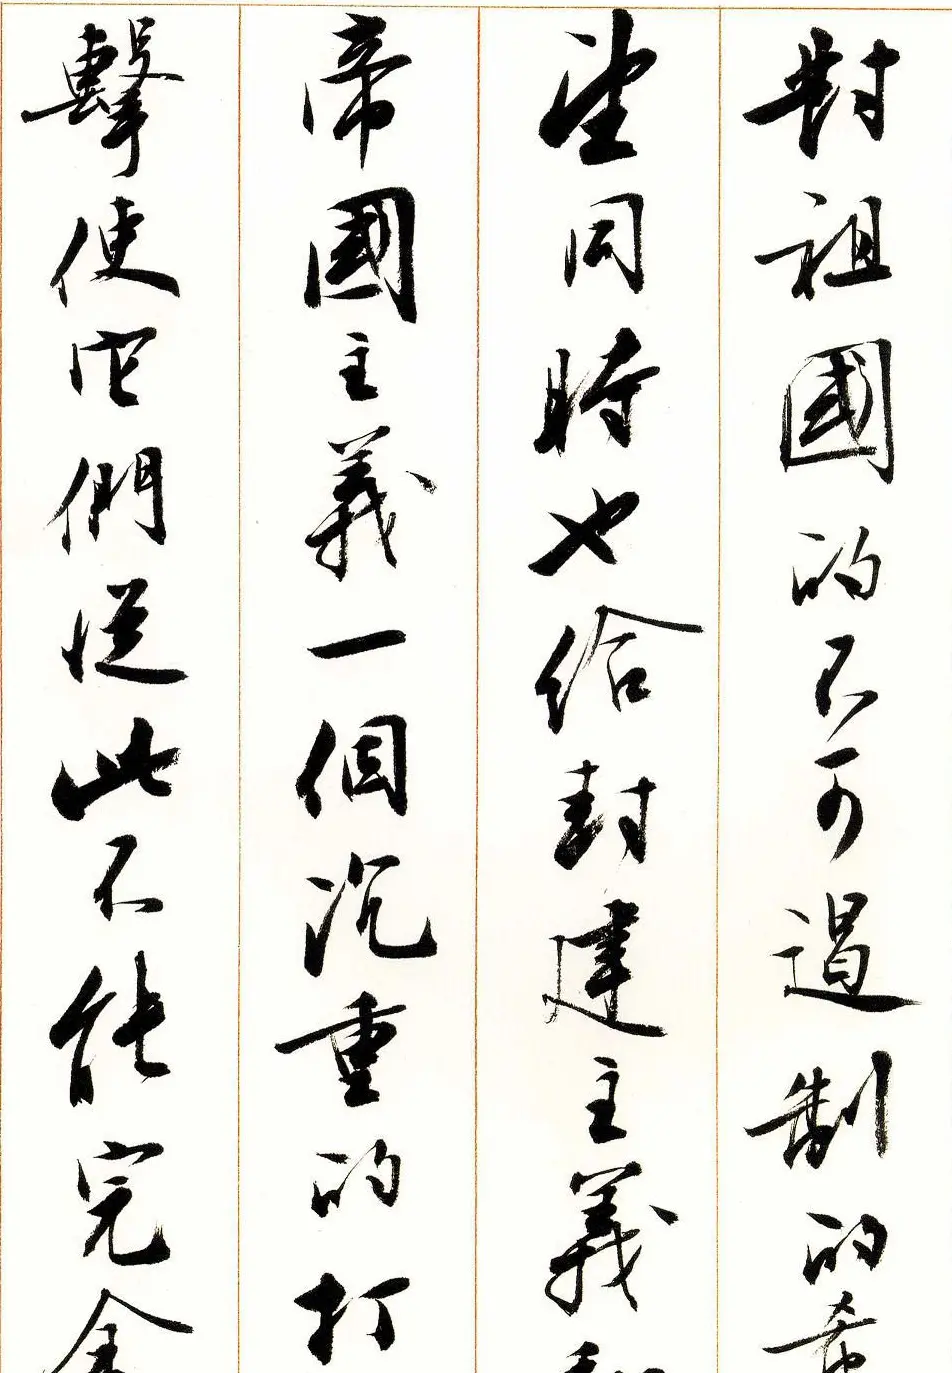 對祖國的不可遏制的希
望同時也給封建主義和
帝國主義一個沉重的打
擊使它們從此不能完全